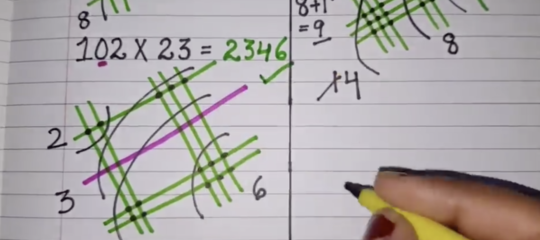 8
102 X 23 = 2346 ✓
2
3
6
8+1
= 9
8
14